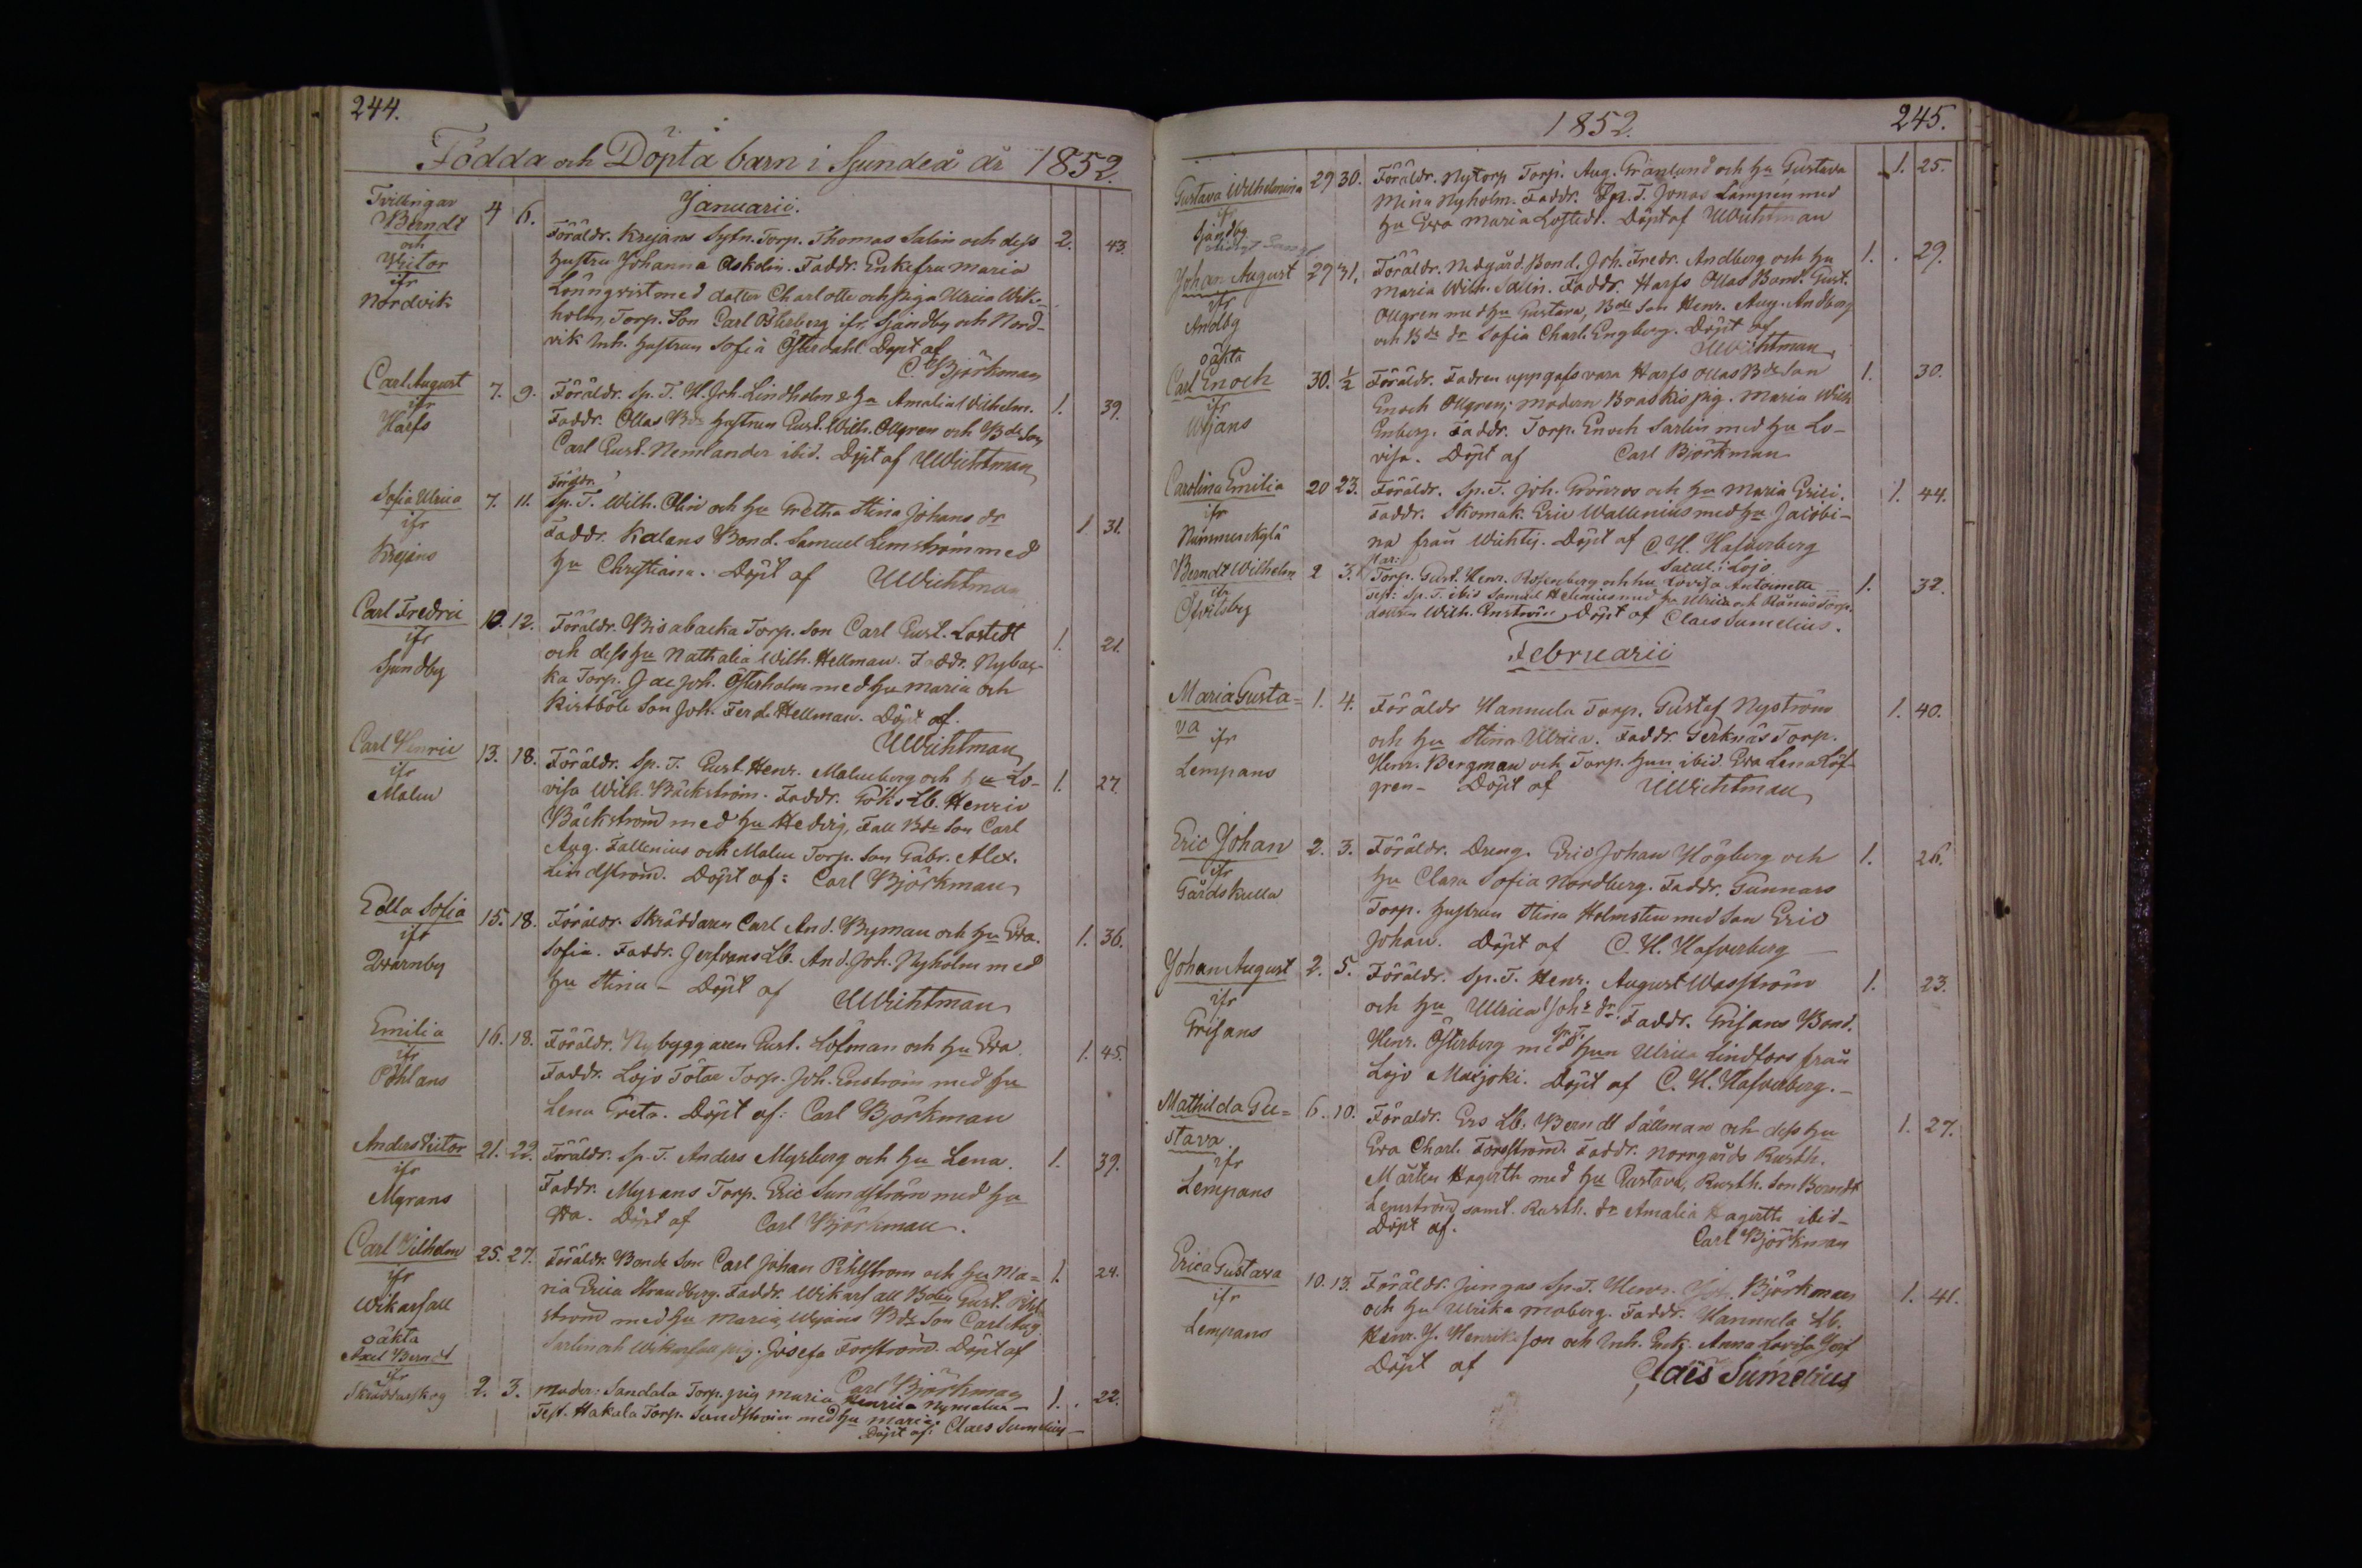 244.
Födda och Döpta barn i Sjundeå år 1852.
Januarii.
Tvillingar
Berndt
och
Victor
ifr
Nordvik
4 6. Föräldr. Krejans Sytn. Torp. Thomas Salin och dess 2. 43.
hustru Johanna Askolin. Faddr. Enkefru Maria
Lönnqvist med dotter Charlotte och piga Ulrica Wik-
holm, Torp. Son Carl Österberg ifr. Sjundby och Nord-
vik Inh. hustrun Sofia Österdahl. Döpt af
C. Björkman
Carl August
ifr
Harfs
7. 9. Föräldr. Sp. T. H. Joh. Lindholm & hu Amalia Wilhelm. 1. 39.
Faddr. Ollas Bde hustrun Gust. Wilh. Ollgren och Bde Son
Carl Gust. Nemlander ibid. Döpt af UWichtman
Sofia Ulrica
ifr
Krejans
Föräldr.
7. 11. Sp. T. Wilh. Olin och hu Gretha Stina Johans dr 1 31.
Faddr. Kalans Bond. Samuel Lemström med
hu Christiana. Döpt af UWichtman
Carl Fredric
ifr
Sjundby
10. 12. Föräldr. Bisabacka Torp. Son Carl Gust. Lostedt 1. 21.
och dess hu Nathalia Wilh. Hellman. Faddr. Nybac-
ka Torp. Jac Joh. Österholm med hu Maria och
Kistböle Son Joh. Ferd. Hellman. Döpt af.
UWichtman
Carl Henric
ifr
Malm
13. 18. Föräldr. Sp. T. Gust. Henr. Malmberg och hu Lo- 1. 27.
visa Wilh. Bäckström. Faddr. Göks Lb. Henric
Bäckström med hu Hedvig, Fall Bde Son Carl
Aug. Fallenius och Malm Torp. Son Gabr. Alex.
Lindström. Döpt af: Carl Björkman
Edla Sofia
ifr
Qvarnby
15. 18. Föräldr. Skräddaren Carl And. Byman och hu Eva 1. 36.
Sofia. Faddr. Gerfvans Lb. And. Joh. Nyholm med
hu Stina - Döpt af UWichtman
Emilia
ifr
Påhlans
16. 18. Föräldr. Nybyggaren Gust. Löfman och hu Eva. 1. 45.
Faddr. Lojo Tötar Torp. Joh. Enström med hu
Lena Greta. Döpt af: Carl Björkman
Anders Victor
ifr
Myrans
21. 22. Föräldr. Sp. T. Anders Myrberg och hu Lena. 1. 39.
Faddr. Myrans Torp. Eric Sundström med hu
Döpt af Carl Björkman.
Carl Vilhelm
ifr
Wikarsall
25. 27. Föräldr. Bonde Son Carl Johan Pihlström och hu Ma= 1. 24.
ria Erica Strandberg. Faddr. Wikarsall Bden Gust. Pihl-
ström med hu Maria, Wejans Bde Son Carl Aug.
Sarlin och Wikarsall pig. Josefa Forsström. Döpt af
Carl Björkman
oäkta
Axel Berndt
ifr
Skräddarskog
2. 3. Moder: Sandala Torp. pig Maria Henrica Nymalm - 1. 22.
Test. Hakala Torp. Sundström med hu Maria.
Döpt af: Claes Sumelius -
1852. 245.
Gustava Wilhelmina
ifr
Sjundby
29 30. Föräldr. Nytorp Torp. Aug. Granlund och hu Gustava 1. 25.
Maria Nyholm. Faddr. Sp. T. Jonas Lampén med
hu Eva Maria Lostedt. Döpt af UWichtman
Johan August
ifr
Andby
29 31. Föräldr. Nedgård. Bond. Joh. Fredr. Andberg och hu 1. 29.
Maria Wilh. Salin. Faddr. Harfs Ollas Bond. Gust.
Ollgren med hu Gustava, Bde Son Henr. Aug. Andberg
och Bde dr Sofia Charl. Engberg. Döpt af
UWichtman
oäkta
Carl Enoch
ifr
Wejans
30. ½ Föräldr. Fadren uppgifs vara Harfs Ollas Bde Son 1. 30.
Enoch Ollgren; modern Braskis pig. Maria Wilh
Enberg. Faddr. Torp. Enoch Sarlin med hu Lo-
visa. Döpt af Carl Björkman
Carolina Emilia
ifr
Nummenkylä
20 23. Föräldr. Sp. T. Joh. Grönros och hu Maria Erici. 1. 44.
Faddr. Skomak. Eric Wallenius med hu Jacobi-
na från Wichtis. Döpt af C. H. Hafverberg
Berndt Wilhelm
ifr
Öfvitsby
2 3. Torp. Gust. Henr. Rosenberg och hu Lovisa Antoinette 1. 32.
Test: Sp. T. ibid Samuel Helenius med hu Ulrica och Torp.
dottren Wilh. Enström Döpt af Claes Sumelius.
Februarii
Maria Gusta=
va ifr
Lempans
1. 4. Föräldr Hannula Torp. Gustaf Nyström 1. 40.
och hu Stina Ulrica. Faddr. Gerknäs Torp.
Henr. Bergman och Torp. hun ibid. Eva Lena Löf-
gren - Döpt af UWichtman
Eric Johan
ifr
Gårdskulla
2. 3. Föräldr. Dreng. Eric Johan Högberg och 1. 26.
hu Clara Sofia Nordberg. Faddr. Gunnars
Torp. hustrun Stina Holmsten med Son Eric
Johan. Döpt af C. H. Hafverberg
Johan August
ifr
Grisans
2. 5. Föräldr. Sp. T. Henr. August Wasström 1. 23.
och hu Ulrica Johs dr. Faddr. Grisans Bond.
Henr. Österberg med Sp. T. hun Ulrica Lindfors från
Lojo Maxjoki. Döpt af C. H. Hafverberg. -
Mathilda Gu=
stava
ifr
Lempans
6. 10. Föräldr. Ers Lb. Berndt Sällman och dess hu 1. 27.
Eva Charl. Forsström. Faddr. Norrgårds Rusth.
Mårten Hagerth med hu Gustava, Rusth. Son Berndt
Lemström samt Rusth. dr Amalia Hagerth ibid-
Döpt af. Carl Björkman
Erica Gustava
ifr
Lempans
10. 13. Föräldr. Jungas Sp. T. Henr. Joh. Björkman 1. 41.
och hu Ulrika Moberg. Faddr. Hannula Lb.
Henr. J. Henriksson och Inh. Enk. Anna Lovisa
Döpt af Claës Sumelius